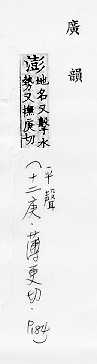 廣韻
澎地名又擊水
勢又撫庚切
平聲
(十二庚.薄更切.P184)